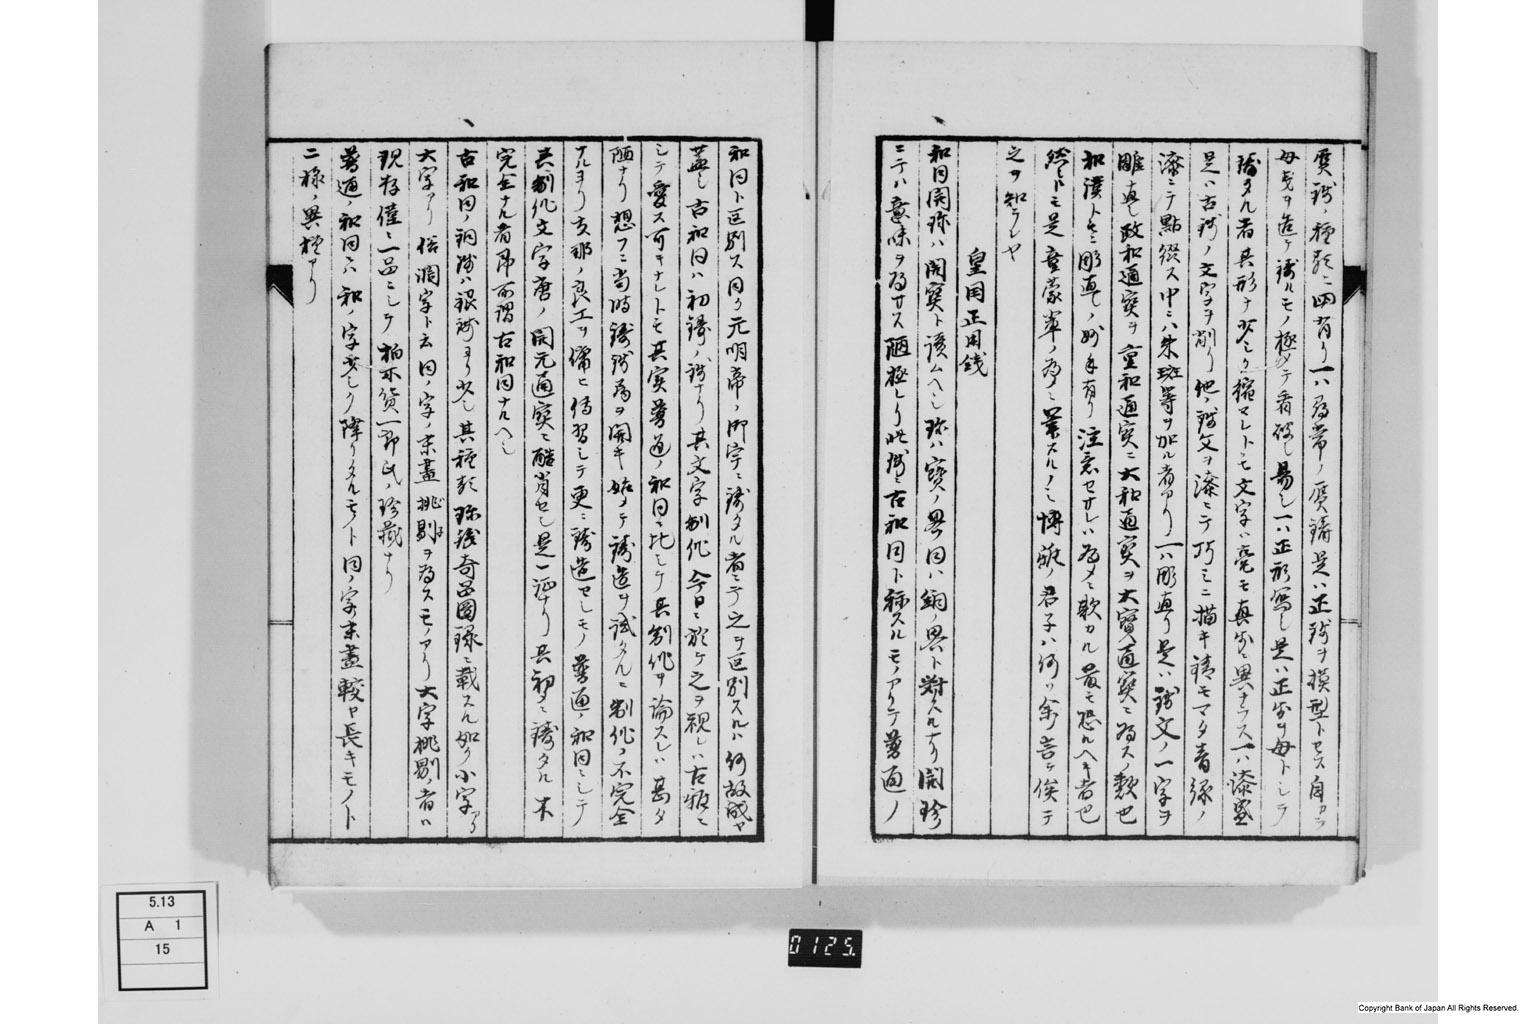 贋銭ノ種類ニ四有リ一ハ尋常ノ贋鋳是ハ正銭ヲ模型トセス自カラ
母銭ヲ造テ鋳ルモノ極メテ看破シ易シ一ハ正形写シ是ハ正品ヲ母トシテ
鋳タル者其形チ少シク縮マレトモ文字ハ毫モ真品ニ異ナラス一ハ漆盛
是ハ古銭ノ文字ヲ削リ他ノ銭文ヲ漆ニテ巧ミニ描キ錆モマタ青緑ノ
漆ニテ點綴ス中ニハ朱斑等ヲ加ル者アリ一ハ彫直リ是ハ銭文ノ一字ヲ
雕直シ政和通宝ヲ重和通宝ニ大和通宝ヲ大宝通宝ニ為スノ類也
和漢トモニ彫直シノ妙手有リ注意セサレハ為メニ欺カル最モ恐ルヘキ者也
然レトモ是童蒙輩ノ為メニ業スルノミ博雅ノ君子ハ何ソ余カ言ヲ俟テ
之ヲ知ランヤ
皇国正用銭
和同開珍ハ開宝ト読ムヘシ珍ハ寶ノ畧同ハ銅ノ畧ト對スルナリ開珍
ニテハ意味ヲ為サス陋極レリ此銭ニ古和同ト称スルモノアリテ普通ノ
和同ト区別ス同ク元明帝ノ御宇ニ鋳タル者ニテ之ヲ区別スルハ何故成ヤ
蓋シ古和同ハ初鋳ノ銭ナリ其文字制作今日ニ於テ之ヲ視レハ古雅ニ
シテ愛ス可キナレトモ其実普通ノ和同ニ比シテ其制作ヲ論スレハ甚タ
陋ナリ想フニ当時鋳銭局ヲ開キ始メテ鋳造ヲ試タルニ制作ノ不完全
ナルヨリ支那ノ良工ヲ傭ヒ傳習シテ更ニ鋳造セシモノ普通ノ和同ニシテ
其制作文字唐ノ開元通宝ニ酷肖セシ是一証ナリ其初メニ鋳タル未
完全ナル者即所謂古和同ナルヘシ
古和同ノ銅銭ハ銀銭ヨリ少シ其種類珍銭奇品図録ニ載スル如ク小字アリ
大字アリ俗濶字ト云同ノ字ノ末畫挑剔ヲ為スモノアリ大字挑剔ノ者ハ
現存僅ニ一品ニシテ柏木貨一郎氏ノ珍蔵ナリ
普通ノ和同ニハ和ノ字少シク降リタルモノト同ノ字末畫較ヤ長キモノト
二様ノ異種アリ
5.13
A 1
15
0125.
Copyright Bank of Japan All Rights Reserved.